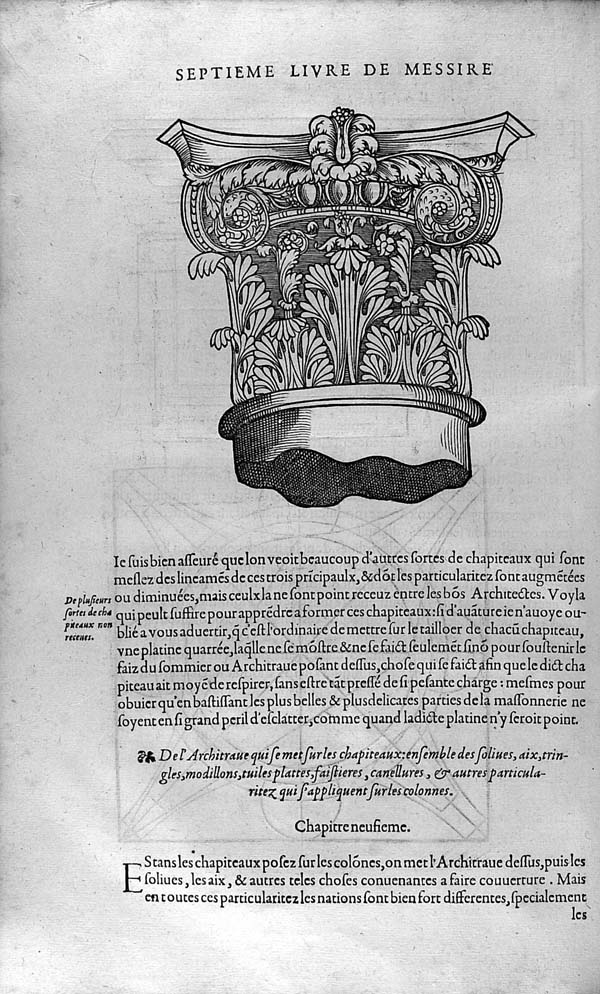 SEPTIEME LIVRE DE MESSIRE
Ie ſuis bien aſſeuré que lon veoit beaucoup d'autres ſortes de chapiteaux qui ſont
meſlez des lineamẽs de ces trois prĩcipaulx, & dõt les particularitez ſont augmẽtées
ou diminuées, mais ceulx la ne ſont point receuz entre les bõs Architectes. Voyla
qui peult ſuffire pour apprẽdre a former ces chapiteaux: ſi d'auãture ien'auoye ou-
blié a vous aduertir, q̃ c'eſt l'ordinaire de mettre ſur le tailloer de chacũ chapiteau,
vne platine quarrée, laq̃lle ne ſe mõſtre & ne ſe faict ſeulemẽt ſinõ pour ſouſtenir le
faiz du ſommier ou Architraue poſant deſſus, choſe qui ſe faict afin que le dict cha
piteau ait moyẽ de reſpirer, ſans eſtre tãt preſſé de ſi peſante charge : meſmes pour
obuier qu'en baſtiſſant les plus belles & plus delicates parties de la maſſonnerie ne
ſoyent en ſi grand peril d'eſclatter, comme quand ladicte platine n'y ſeroit point.
De pluſieurs
ſortes de cha
piteaux non
receues.
De l'Architraue qui ſe met ſur les chapiteaux: enſemble des ſoliues, aix, trin-
gles, modillons, tuiles plattes, faiſtieres, canellures, & autres particula-
ritez qui s'appliquent ſur les colonnes.
Chapitre neufieme.
EStans les chapiteaux poſez ſur les colõnes, on met l'Architraue deſſus, puis les
ſoliues, les aix, & autres teles choſes conuenantes a faire couuerture. Mais
en toutes ces particularitez les nations ſont bien fort differentes, ſpecialement
les